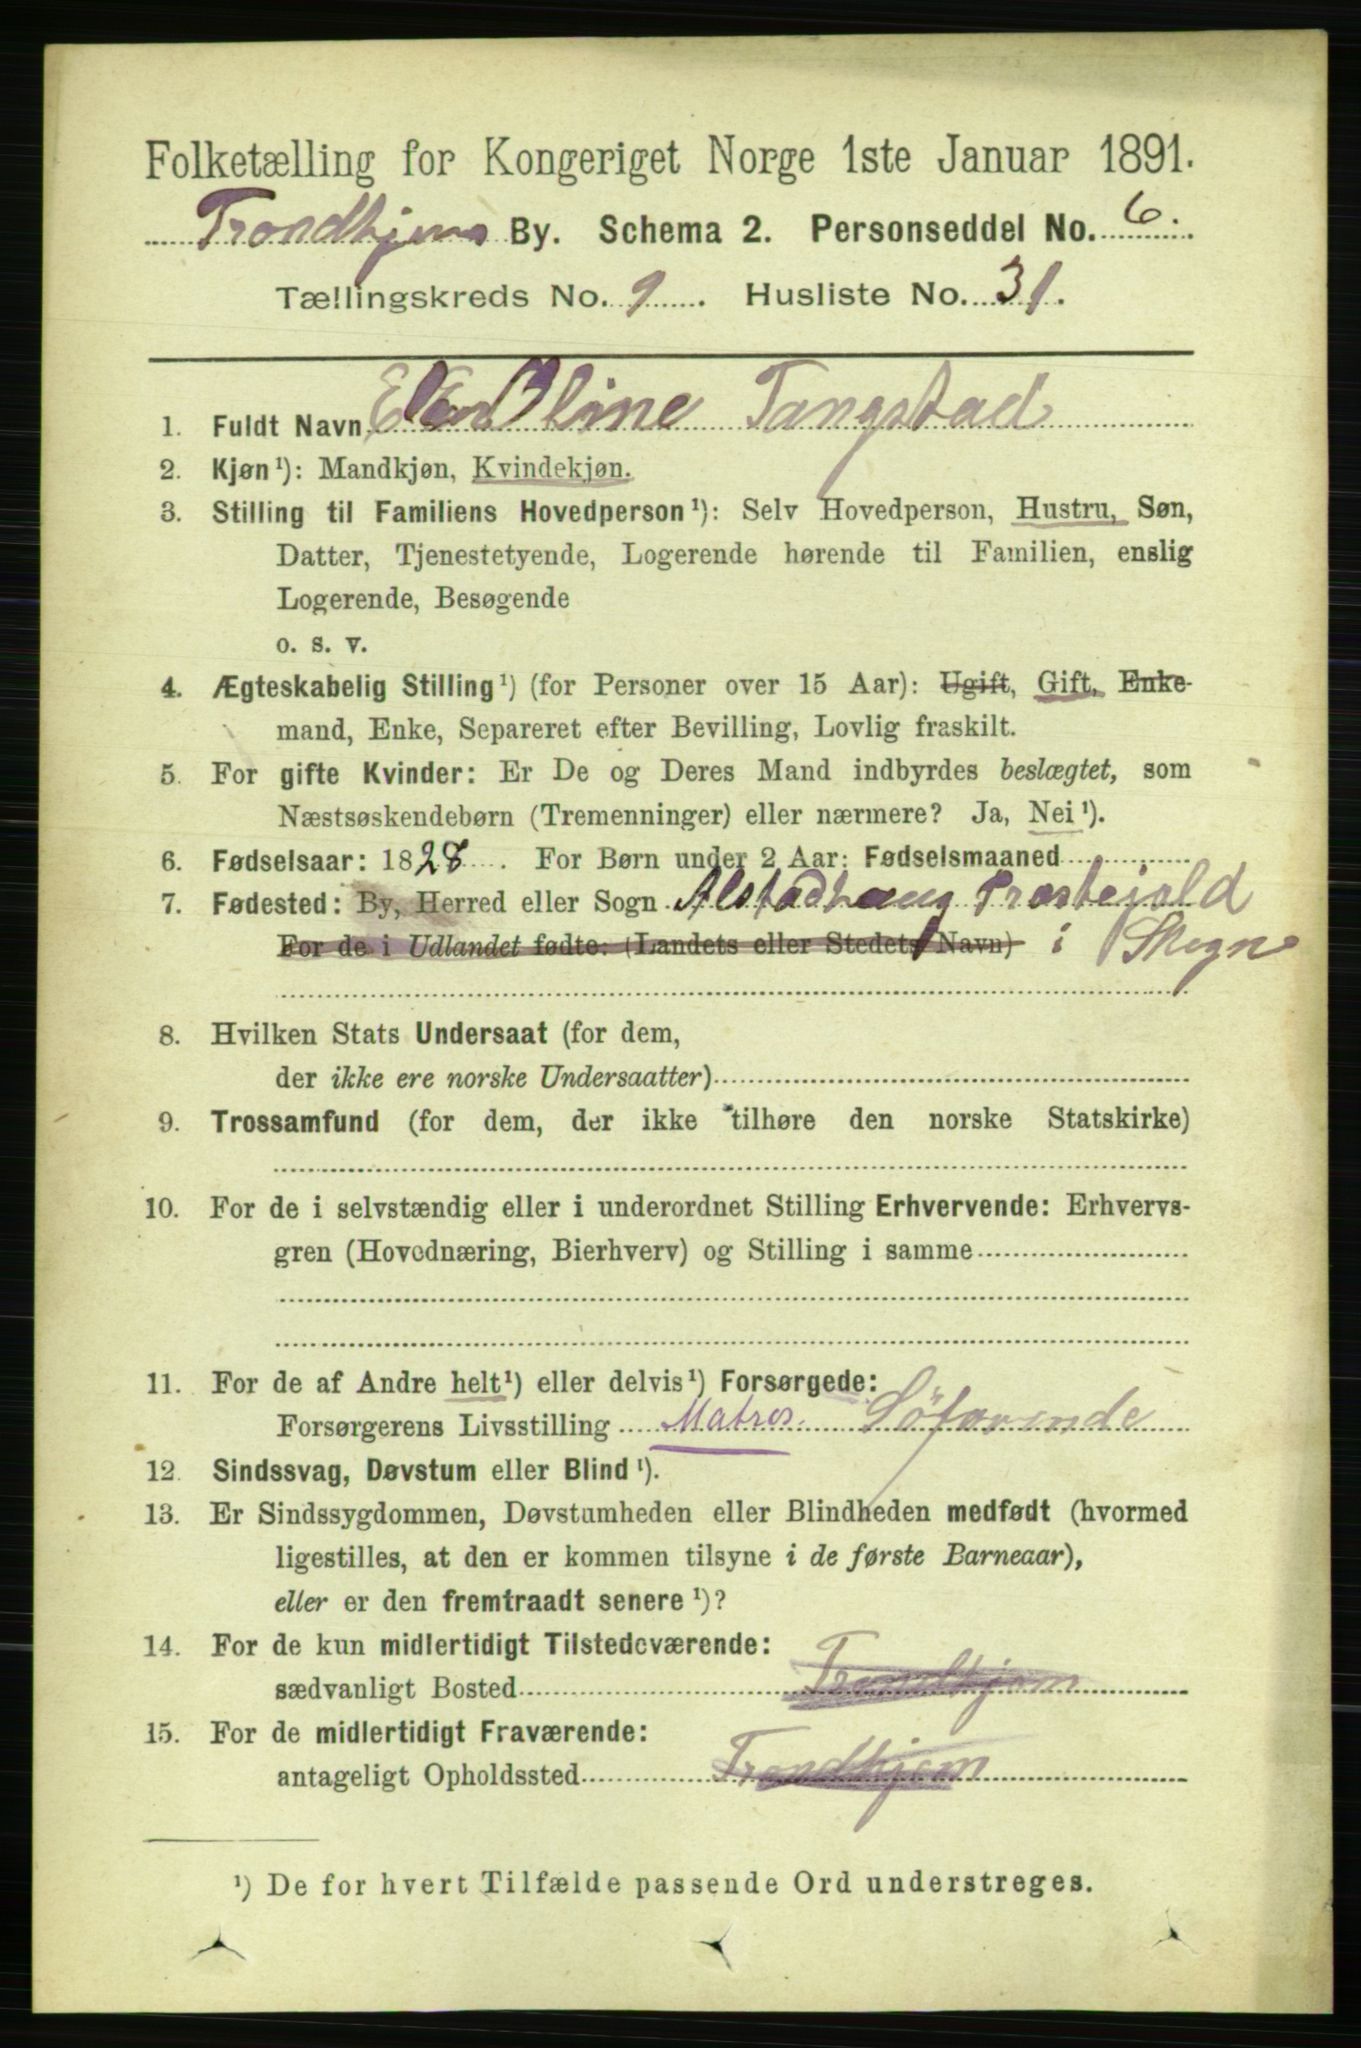 Folketælling for Kongeriget Norge 1ste Januar 1891.
Trondhjems By. Schema 2. Personseddel No. 6.
Tællingskreds No. 9. Husliste No. 31.
1. Fuldt Navn Oline Tangstad
2. Kjøn¹): Mandkjøn, Kvindekjøn.
3. Stilling til Familiens Hovedperson¹): Selv Hovedperson, Hustru, Søn,
Datter, Tjenestetyende, Logerende hørende til Familien, enslig
Logerende, Besøgende
o. s. v.
4. Ægteskabelig Stilling¹) (for Personer over 15 Aar): Ugift, Gift, Enke-
mand, Enke, Separeret efter Bevilling, Lovlig fraskilt.
5. For gifte Kvinder: Er De og Deres Mand indbyrdes beslægtet, som
Næstsøskendebørn (Tremenninger) eller nærmere? Ja, Nei¹).
6. Fødselsaar: 1828. For Børn under 2 Aar: Fødselsmaaned
7. Fødested: By, Herred eller Sogn Alstadhaug Præstejæld
For de i Udlandet fødte: (Landets eller Stedets Navn) i Skogn
8. Hvilken Stats Undersaat (for dem,
der ikke ere norske Undersaatter)
9. Trossamfund (for dem, der ikke tilhøre den norske Statskirke)
10. For de i selvstændig eller i underordnet Stilling Erhvervende: Erhvervs-
gren (Hovednæring, Bierhverv) og Stilling i samme
11. For de af Andre helt¹) eller delvis¹) Forsørgede:
Forsørgerens Livsstilling Matros. Söfarende
12. Sindssvag, Døvstum eller Blind¹).
13. Er Sindssygdommen, Døvstumheden eller Blindheden medfødt (hvormed
ligestilles, at den er kommen tilsyne i de første Barneaar),
eller er den fremtraadt senere¹)?
14. For de kun midlertidigt Tilstedeværende:
sædvanligt Bosted Trondhjem
15. For de midlertidigt Fraværende:
antageligt Opholdssted Trondhjem
¹) De for hvert Tilfælde passende Ord understreges.